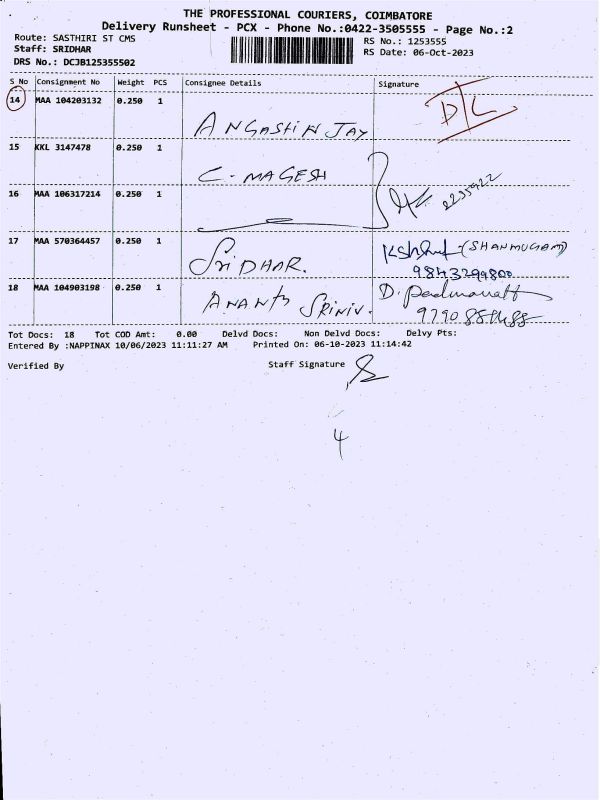 THE PROFESSIONAL COURIERS, COIMBATORE
Delivery Runsheet - PCX - Phone No.:0422-3505555 - Page No.:2
Route: SASTHIRI ST CMS RS No.: 1253555
Staff: SRIDHAR RS Date: 06-Oct-2023
DRS No.: DCJB125355502
S No Consignment No Weight PCS Consignee Details Signature
14 MAA 104203132 0.250 1 ANGASHIN JAY D/L
15 KKL 3147478 0.250 1 C. MAGESH
16 MAA 106317214 0.250 1 2235922
17 MAA 570364457 0.250 1 SRIDHAR. (SHANMUGAM)
9843299800
18 MAA 104903198 0.250 1 ANANTH SRINIV. D. Padmanath
Tot Docs: 18 Tot COD Amt: 0.00 Delvd Docs: Non Delvd Docs: Delvy Pts:
Entered By :NAPPINAX 10/06/2023 11:11:27 AM Printed On: 06-10-2023 11:14:42
Verified By Staff Signature
4